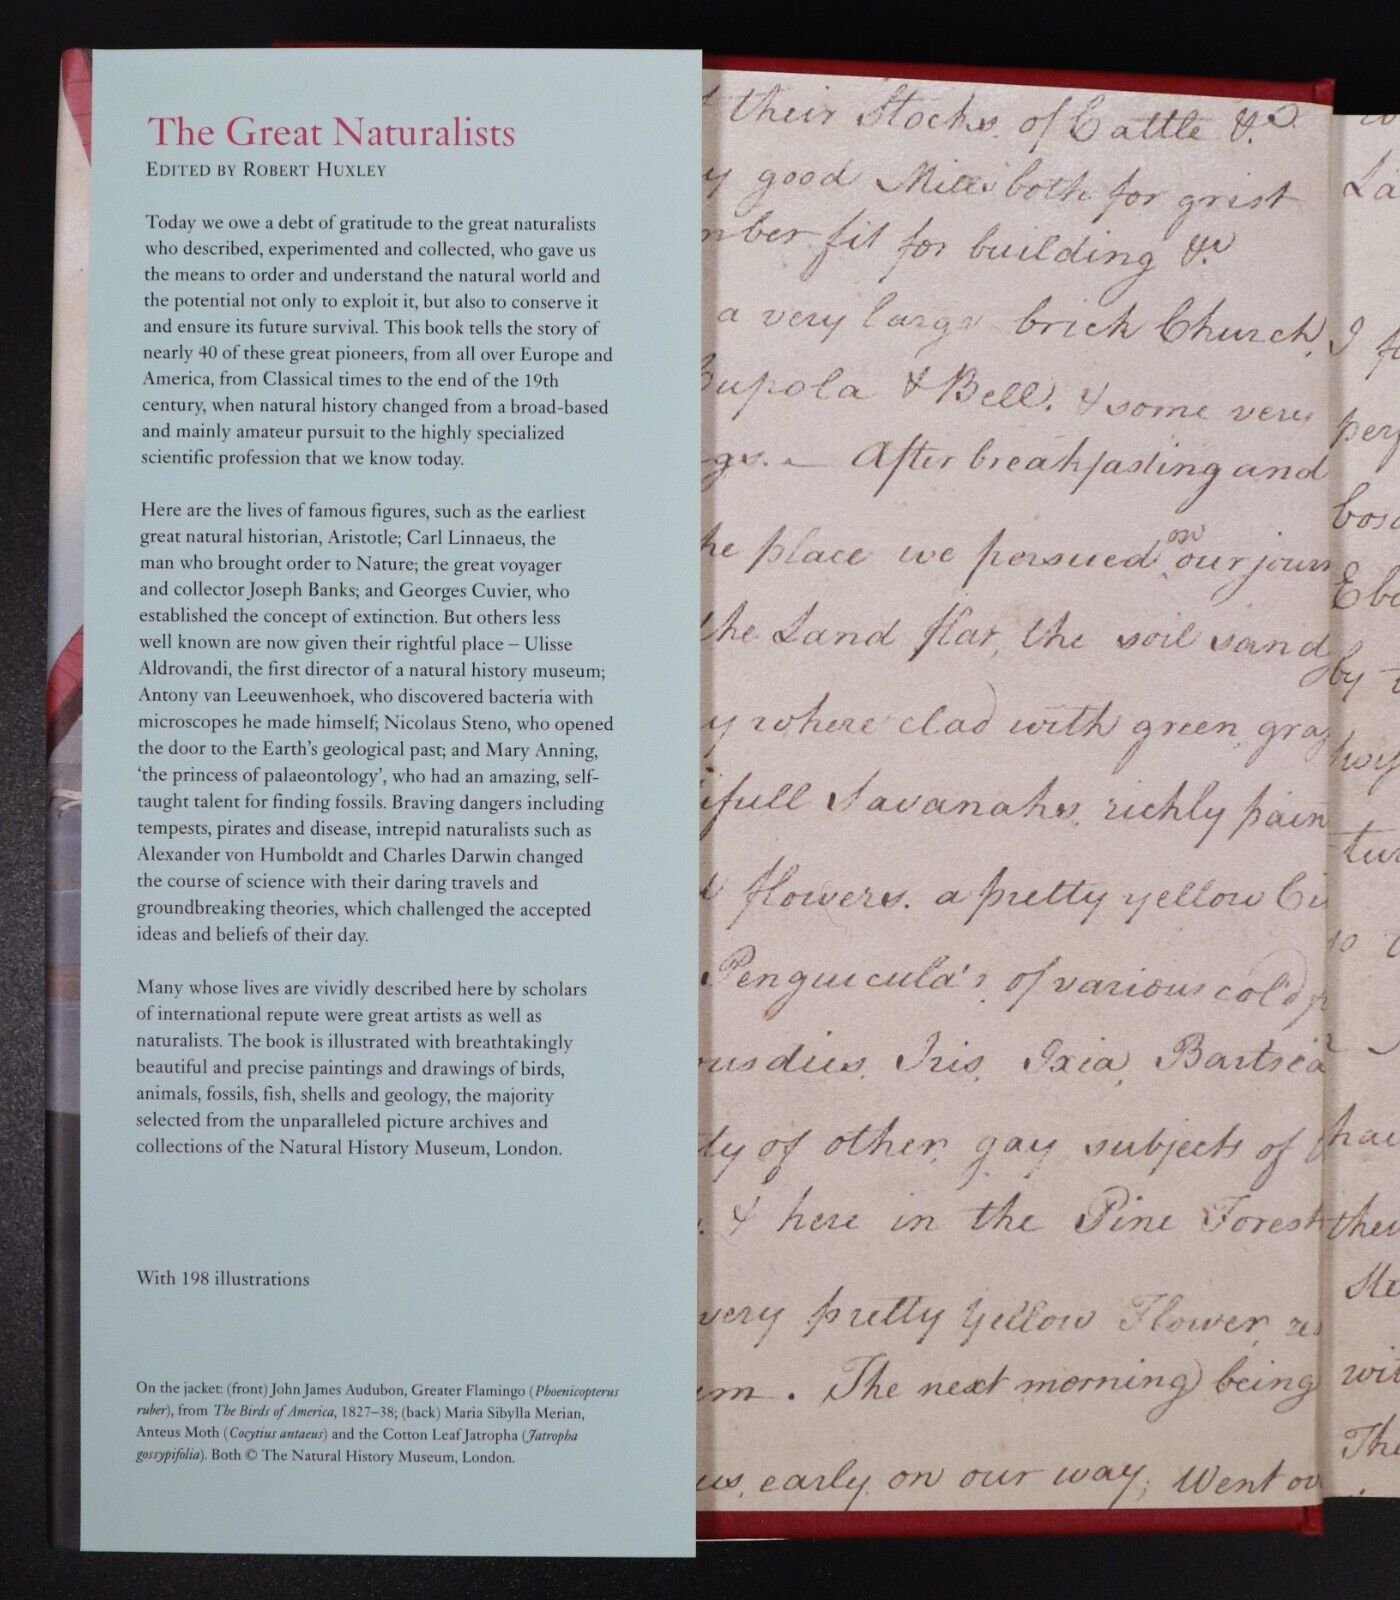 The Great Naturalists
EDITED BY ROBERT HUXLEY
Today we owe a debt of gratitude to the great naturalists
who described, experimented and collected, who gave us
the means to order and understand the natural world and
the potential not only to exploit it, but also to conserve it
and ensure its future survival. This book tells the story of
nearly 40 of these great pioneers, from all over Europe and
America, from Classical times to the end of the 19th
century, when natural history changed from a broad-based
and mainly amateur pursuit to the highly specialized
scientific profession that we know today.
Here are the lives of famous figures, such as the earliest
great natural historian, Aristotle; Carl Linnaeus, the
man who brought order to Nature; the great voyager
and collector Joseph Banks; and Georges Cuvier, who
established the concept of extinction. But others less
well known are now given their rightful place – Ulisse
Aldrovandi, the first director of a natural history museum;
Antony van Leeuwenhoek, who discovered bacteria with
microscopes he made himself; Nicolaus Steno, who opened
the door to the Earth's geological past; and Mary Anning,
'the princess of palaeontology', who had an amazing, self-
taught talent for finding fossils. Braving dangers including
tempests, pirates and disease, intrepid naturalists such as
Alexander von Humboldt and Charles Darwin changed
the course of science with their daring travels and
groundbreaking theories, which challenged the accepted
ideas and beliefs of their day.
Many whose lives are vividly described here by scholars
of international repute were great artists as well as
naturalists. The book is illustrated with breathtakingly
beautiful and precise paintings and drawings of birds,
animals, fossils, fish, shells and geology, the majority
selected from the unparalleled picture archives and
collections of the Natural History Museum, London.
With 198 illustrations
On the jacket: (front) John James Audubon, Greater Flamingo (Phoenicopterus
ruber), from The Birds of America, 1827–38; (back) Maria Sibylla Merian,
Anteus Moth (Cocytius antaeus) and the Cotton Leaf Jatropha (Jatropha
gossypifolia). Both © The Natural History Museum, London.
their Stocks of Cattle &c
y good Mills both for grist
mber fit for building &c
a very large brick Church,
Cupola & Bell. & some very
gs. — After breakfasting and
he place we persued on our journ
the Land flat, the soil sand
y where clad with green gras
ifull Savanahs, richly pain
flowers. a pretty yellow
Penguicula's of various col'd
Iris, Ixia, Bartsia
ty of other gay subjects of
& here in the Pine Forest
very pretty Yellow Flower
m. The next morning being
us, early on our way; Went ov